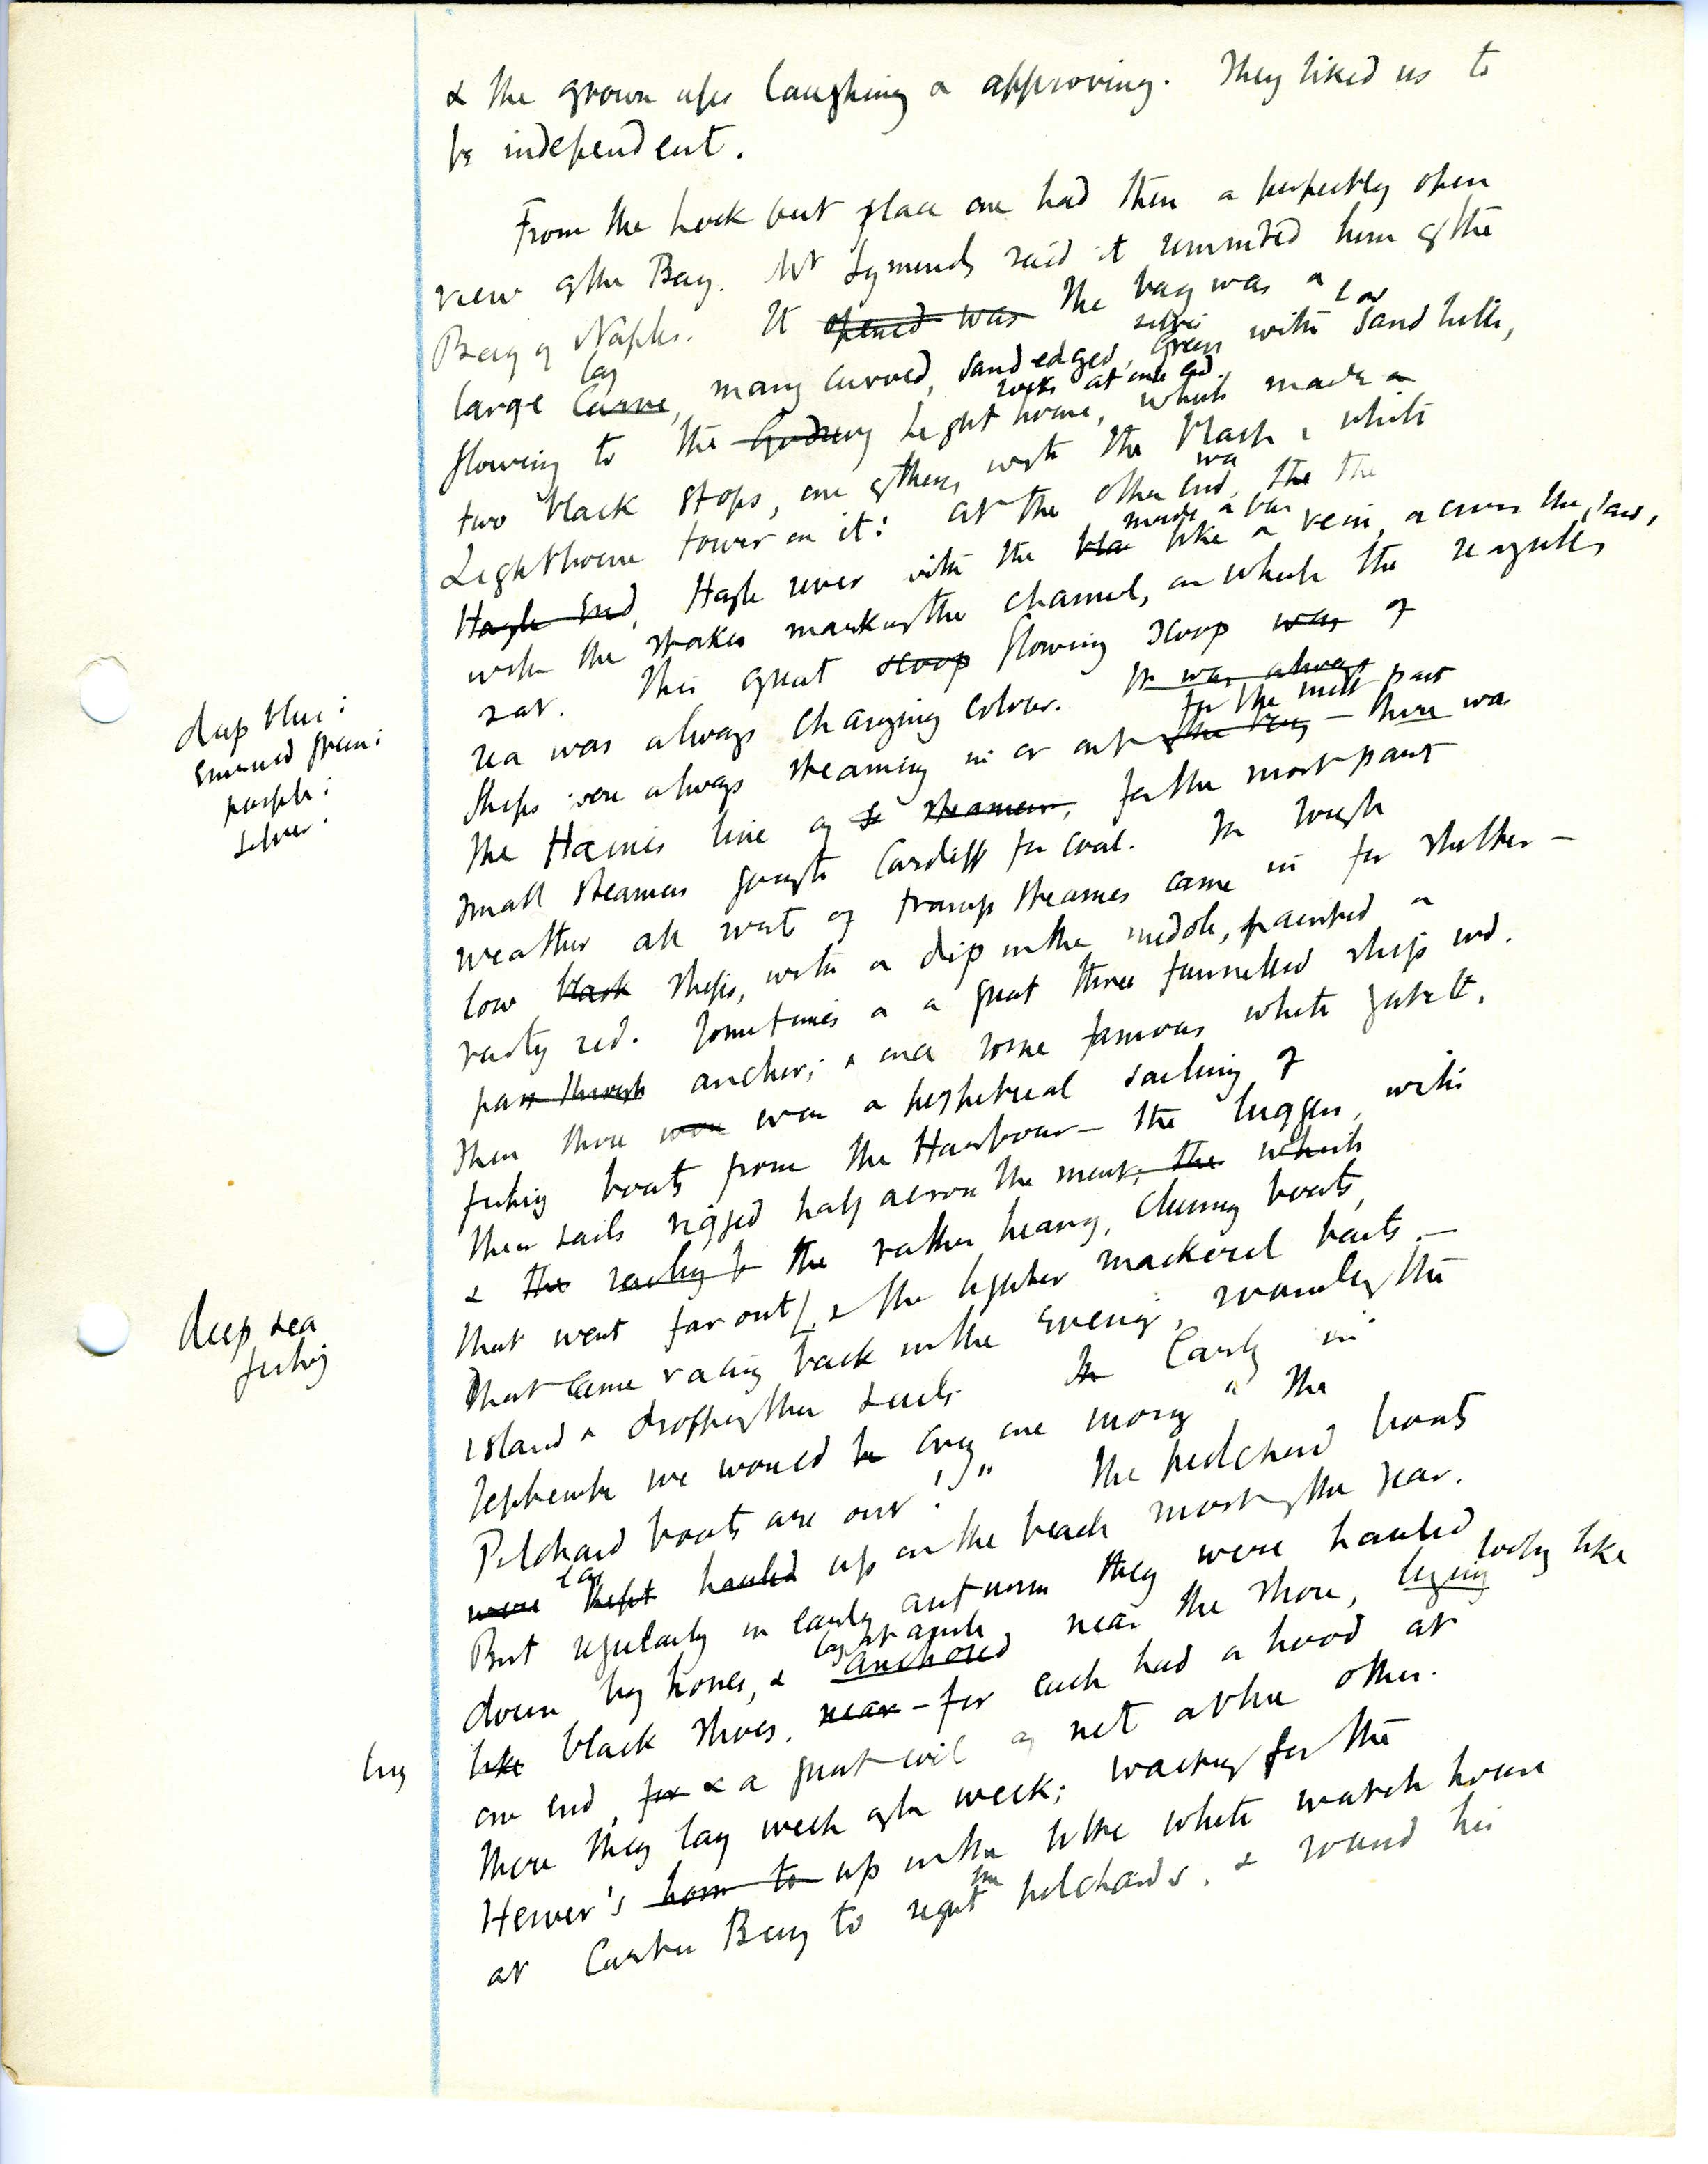 & the grown ups laughing & approving. They liked us to
be independent.
From the Look out place one had then a perfectly open
view of the Bay. Mr Symonds said it reminded him of the
Bay of Naples. It opened was The bay was a
large Curve, lap many curved, sand edged, silver green with low Sand hills,
flowing to the Godrevy Light house, rocks at one end, which made
two black stops, one of them with the black & white
Lighthouse tower on it: at the other end, was the the
Hayle End, Hayle river with the bla made a bar like a vein, across the sand,
with the stakes marking the channel, on which the seagulls
sat. This great scoop flowing scoop was of
sea was always changing colour. It was always
deep blue:
emerald green:
purple:
silver.
Ships were always steaming in or out the bay for the most part – there was
the Haines line of steamers, for the most part
small steamers going to Cardiff for coal. In rough
weather all sorts of tramp steamers came in for shelter –
low black ships, with a dip in the middle, painted a
rusty red. Sometimes a a great three funnelled ships wd.
pass through anchor; & once some famous white yacht.
Then there were was a perpetual sailing of
fishing boats from the Harbour – the luggers, with
their sails rigged half across the mast; the which
& the the rather heavy, clumsy boats,
that went far out, & the lighter mackerel boats –
deep sea
fishing
that came racing back in the evening, rounding the
island & dropping their sails. In Early in
September we would be cry one morning "The
Pilchard boats are out!" The pilchard boats
were kept hauled lay up on the beach most of the year.
But regularly in early autumn they were hauled
down by horses, & anchored near the shore, lying looking like
like black shoes. near – for each had a hood at
one end, for & a great coil of net at the other.
There they lay week after week; waiting for the
Hewer's up in the little white watch house
at Carbis Bay to sight the pilchards, & round his